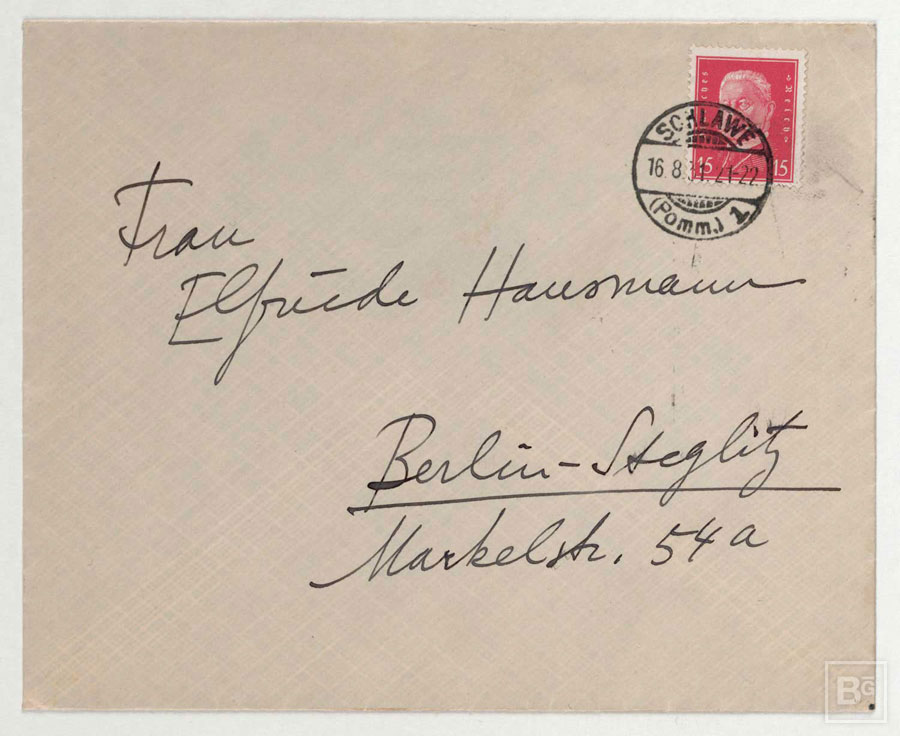 ches Reich
15 15
SCHLAWE
16.8.31. 21-22
(Pomm.) 1
Frau
Elfriede Hausmann
Berlin-Steglitz
Markelstr. 54a
BG